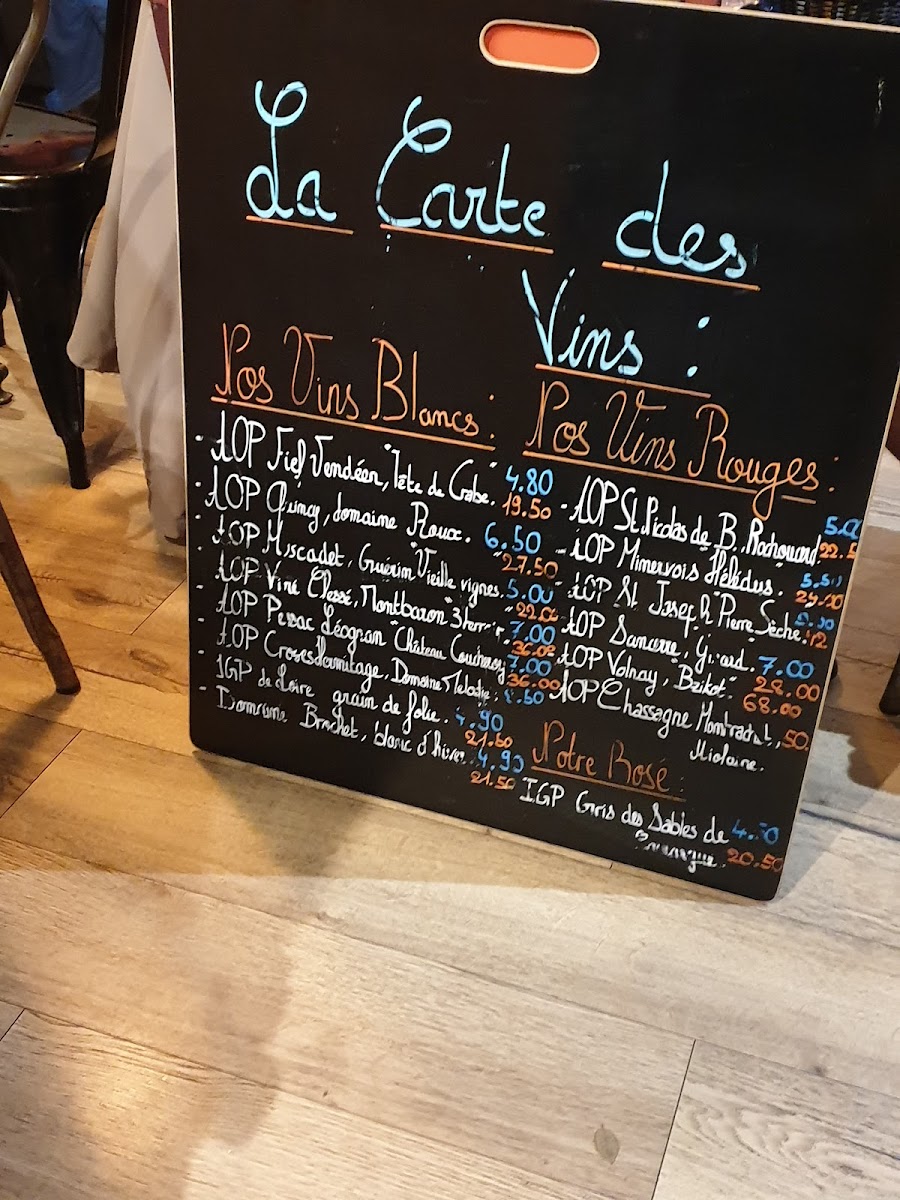 La Carte des
Vins :
Nos Vins Blancs :
- AOP Fief Vendéen, "Tête de Crabe". 4.80
19.50
- AOP Quincy, domaine Roux. 6.50
27.50
- AOP Muscadet, Guérin "Vieille vignes. 5.00
22.00
- AOP Viré Clessé, Montbazon 7.00
36.00
- AOP Pessac Léognan Château 7.00
36.00
- AOP Croses Hermitage, Domaine Melodie. 8.50
- IGP de Loire grain de folie. 4.90
21.50
- Domaine Brochet, blanc d'hiver. 4.90
21.50
Nos Vins Rouges :
- AOP St. Nicolas de B. Rochouard.
- AOP Minervois Hélédus. 5.50
- AOP St Joseph Pierre Sèche.
- AOP Sancerre, Girard. 7.00
28.00
- AOP Volnay, Bzikot. 68.00
AOP Chassagne 50.
Notre Rosé :
IGP Gris des Sables de
20.50